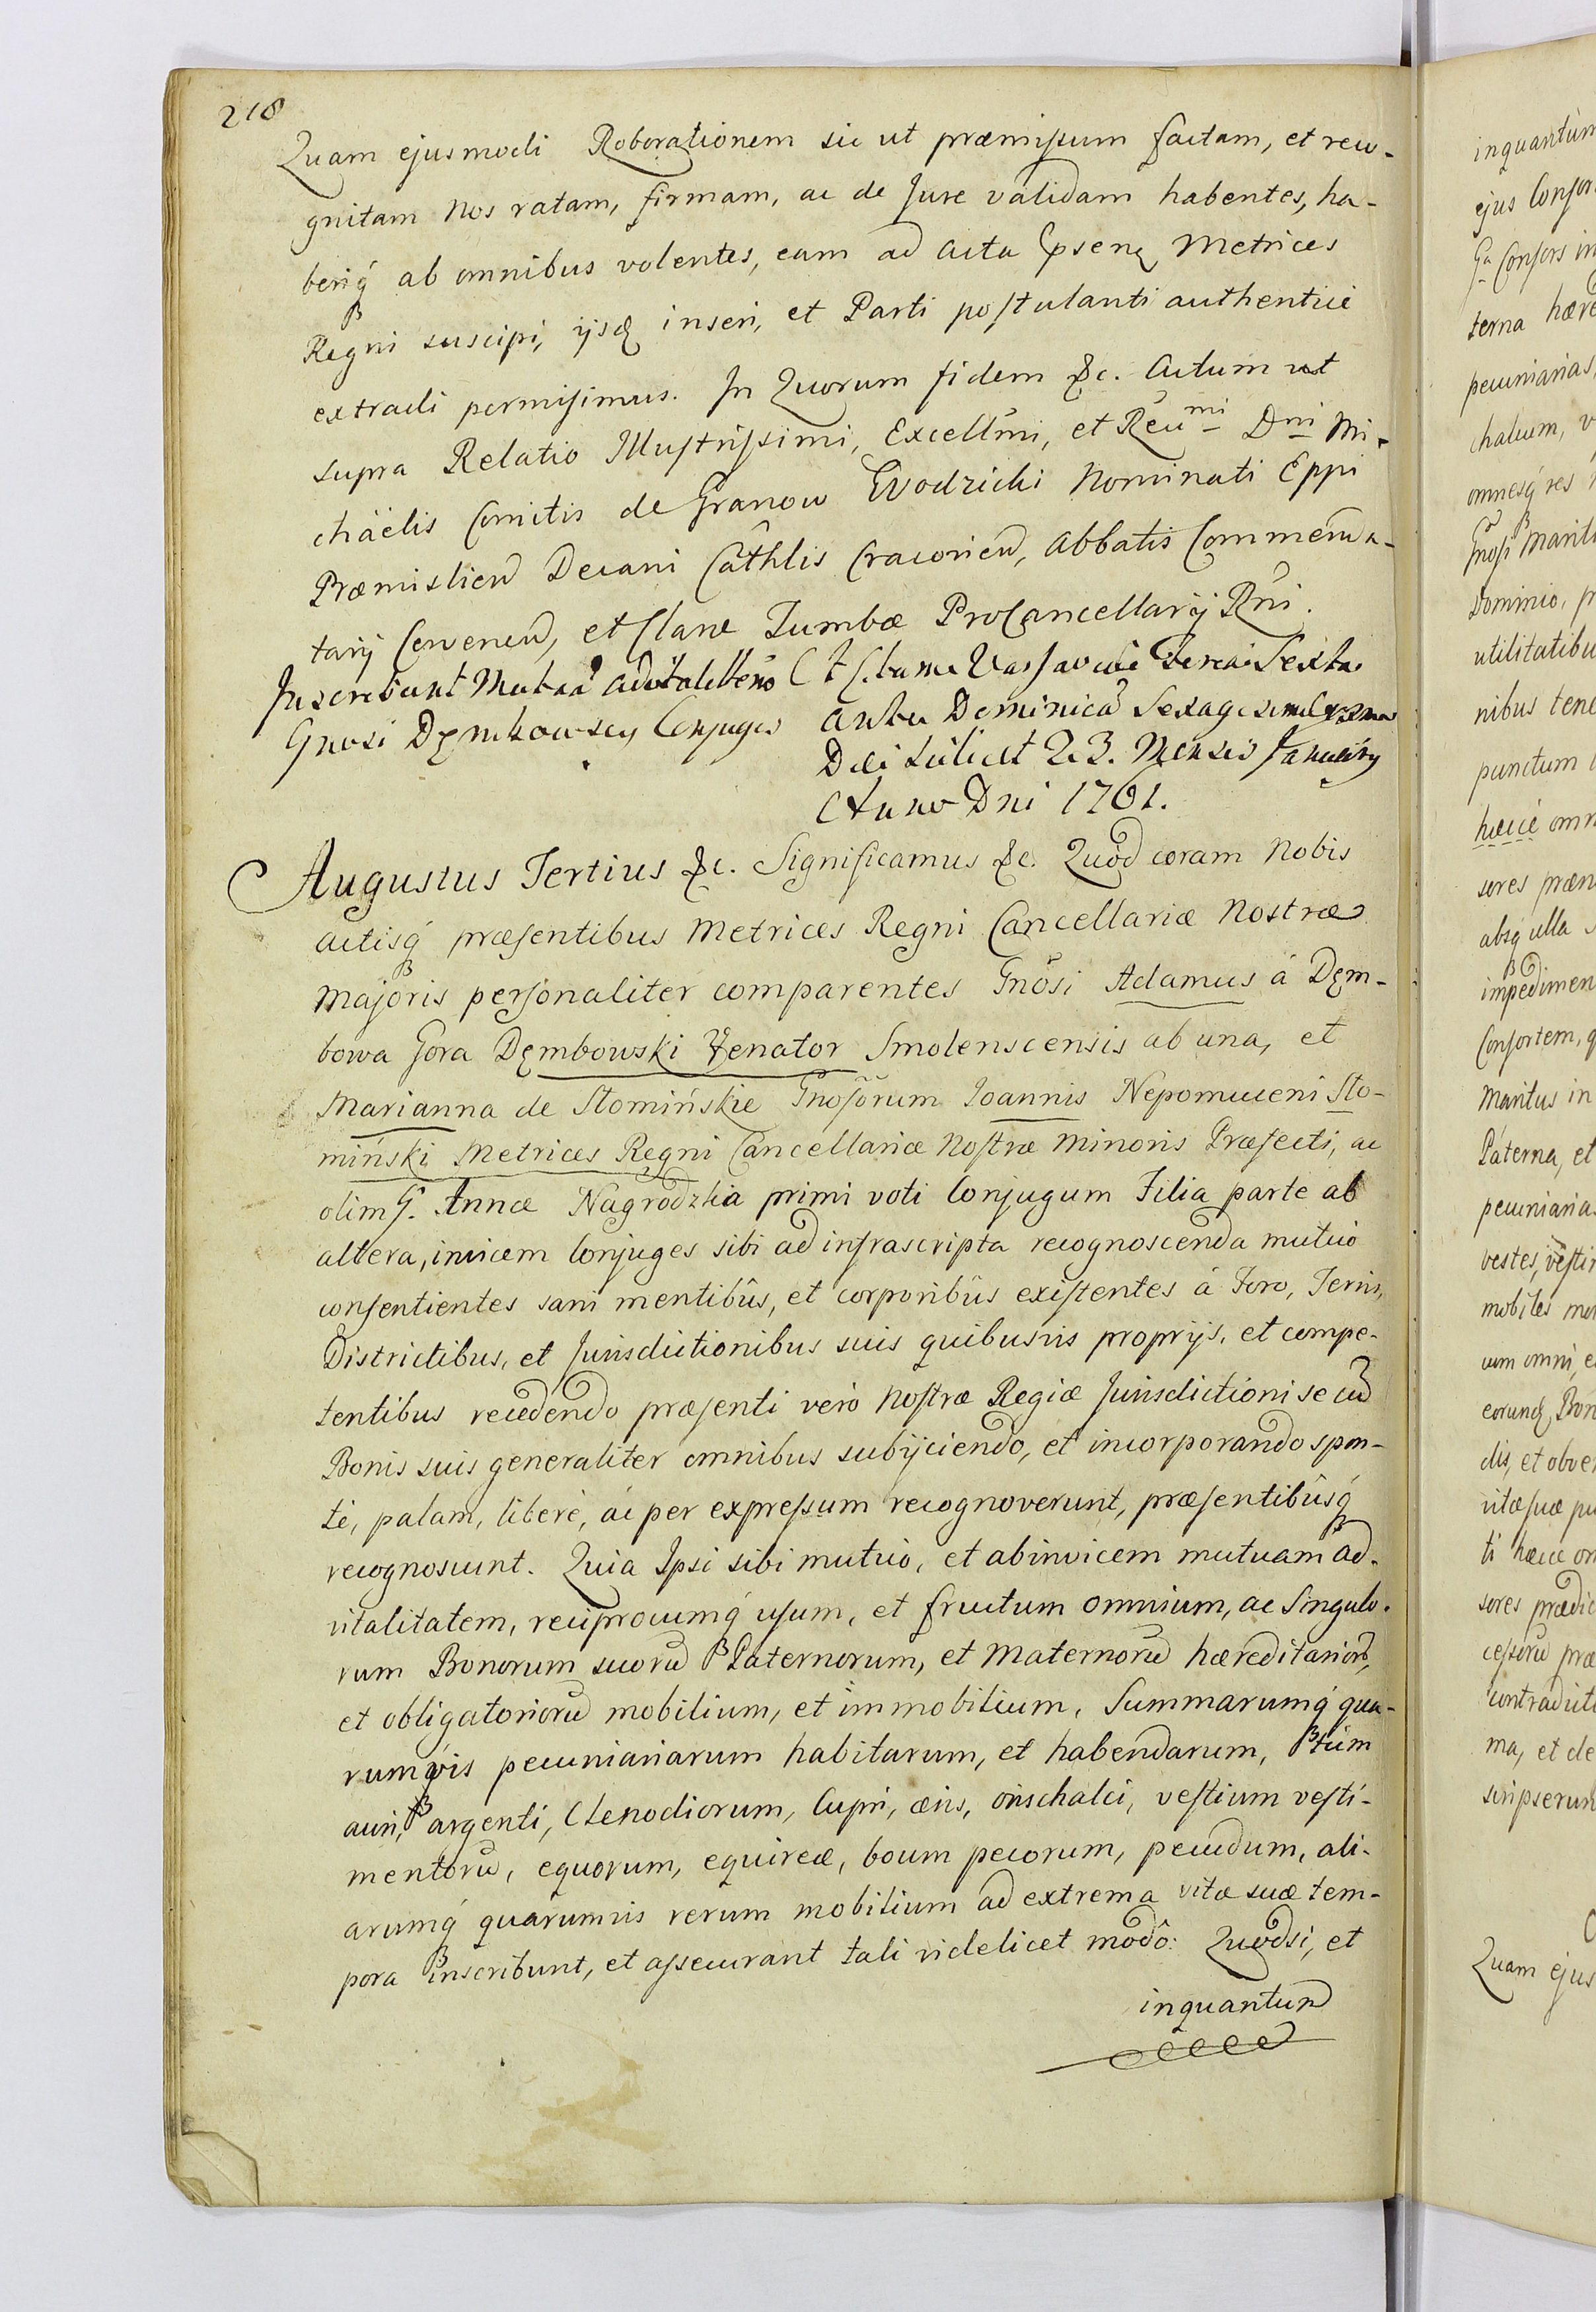 218
Quam ejusmodi Roborationem sic ut præmissum factam, et reco-
gnitam Nos ratam, firmam, ac de Jure validam habentes, ha-
beriq́ ab omnibus volentes, eam ad Acta Metrices
Regni suscipi, ijsq́ inseri, et Parti postulanti authentice
extradi permisimus. In Quorum fidem &c. Actum ut
supra Relatio Illustrissimi, Excellmi, et Reumi Dni Mi-
chäelis Comitis de Granow Wodzicki Nominati Eppi
Præmislien Decani Câthlis Cracovien, Abbatis Commenda-
tarij Cervenen, et Claræ Tumbæ ProCancellarij Rni.
Inscribunt Mutuã
Gnosi Dęmbowscy Conjuges
Actum Varsaviæ Feria Sexta
Ante Dominicã Sexagesimæ
Die scilicet 23. Mensis Januarij
Anno Dni 1761.
Augustus Tertius &c. Significamus &c. Quòd coram Nobis
actisq́ præsentibus Metrices Regni Cancellariæ Nostræ
Majoris personaliter comparentes Gnôsi Adamus á Dęm-
bowa Gora Dęmbowski Venator Smolenscensis ab una, et
Marianna de Słomińskie Gnosõrum Ioannis Nepomuceni Sło-
miński Metrices Regni Cancellariæ Nostræ Minoris Præfecti, ac
olim G. Annæ Nagrodzkia primi voti Conjugum Filia parte ab
altera, invicem Conjuges sibi ad infrascripta recognoscenda mutuò
consentientes sani mentibûs, et corporibûs existentes á Foro, Terris,
Districtibus, et Jurisdictionibus suis quibusvis proprijs, et compe-
tentibus recedendo præsenti verò Nostræ Regiæ Jurisdictioni se cum
Bonis suis generaliter omnibus subijciendo, et incorporando spon-
tè, palam, liberè, ác per expressum recognoverunt, præsentibûsq́
recognoscunt. Quia Ipsi sibi mutuò, et abinvicem mutuam ad-
vitalitatem, reciprocumq́ usum, et fructum omnium, ac Singulo-
rum Bonorum suorũ Paternorum, et Maternorũ hæreditariorũ,
et obligatoriorũ mobilium, et immobilium, Summarumq́ qua-
rumvis pecuniariarum habitarum, et habendarum, tùm
auri, argenti, Clenodiorum, Cupri, æris, orischalci, vestium vesti-
mentorũ, equorum, equireæ, boum pecorum, pecudum, ali-
arumq́ quarumvis rerum mobilium ad extrema vitæ suæ tem-
pora inscribunt, et assecurant tali videlicet modô: Quodsi, et
inquantum
inquantùm
ejus Consor
Ga Consors in
terna hære
pecuniarias,
chalcum, v
omnesq́ res
Gnosi Mariti
Dominio, p
utilitatibu
nibus tene
punctum
hæccè omn
sores præn
absq́ ulla
impedimen
Consortem, q
Maritus in
Paterna, et
pecuniaria
vestes, vesti
mobiles
cum omni, e
eorunq́ Bon
dis, et obve
vitæ suæ
ti hæcce om
sores prædic
cessorũ præ
contradicti
ma, et de
scripserun
Quam ejus